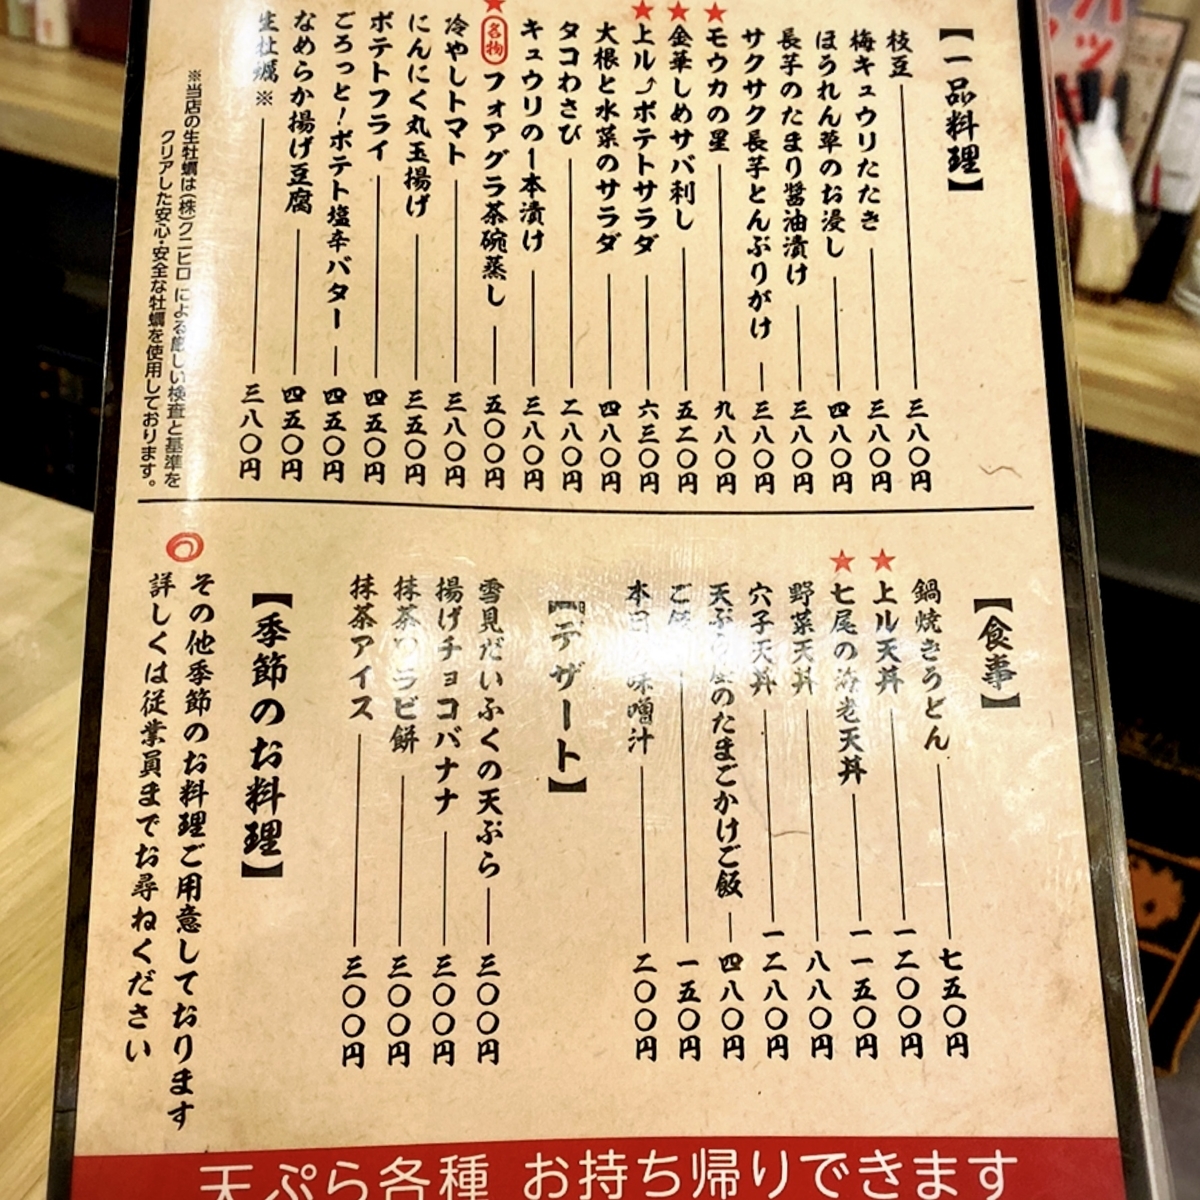 【一品料理】
枝豆 三八〇円
梅キュウリたたき 三八〇円
ほうれん草のお浸し 四八〇円
長芋のたまり醤油漬け 三八〇円
サクサク長芋とんぶりがけ 三八〇円
★モウカの星 九八〇円
★金華しめサバ刺し 五二〇円
★上ル⤴ポテトサラダ 六三〇円
大根と水菜のサラダ 四八〇円
タコわさび 二八〇円
キュウリの1本漬け 三八〇円
★名物 フォアグラ茶碗蒸し 五〇〇円
冷やしトマト 三八〇円
にんにく丸玉揚げ 三五〇円
ポテトフライ 四五〇円
ごろっと!ポテト塩辛バター 四五〇円
なめらか揚げ豆腐 四五〇円
生牡蠣※ 三八〇円
※当店の生牡蠣は(株)クニヒロによる厳しい検査と基準を
クリアした安心・安全な牡蠣を使用しております。
【食事】
鍋焼きうどん 七五〇円
★上ル天丼 一二〇〇円
★七尾の海老天丼 一一五〇円
野菜天丼 八八〇円
穴子天丼 一二八〇円
天ぷら屋のたまごかけご飯 四八〇円
ご飯 一五〇円
本日の味噌汁 二〇〇円
【デザート】
雪見だいふくの天ぷら 三〇〇円
揚げチョコバナナ 三〇〇円
抹茶ワラビ餅 三〇〇円
抹茶アイス 三〇〇円
【季節のお料理】
その他季節のお料理ご用意しております
詳しくは従業員までお尋ねください
天ぷら各種 お持ち帰りできます